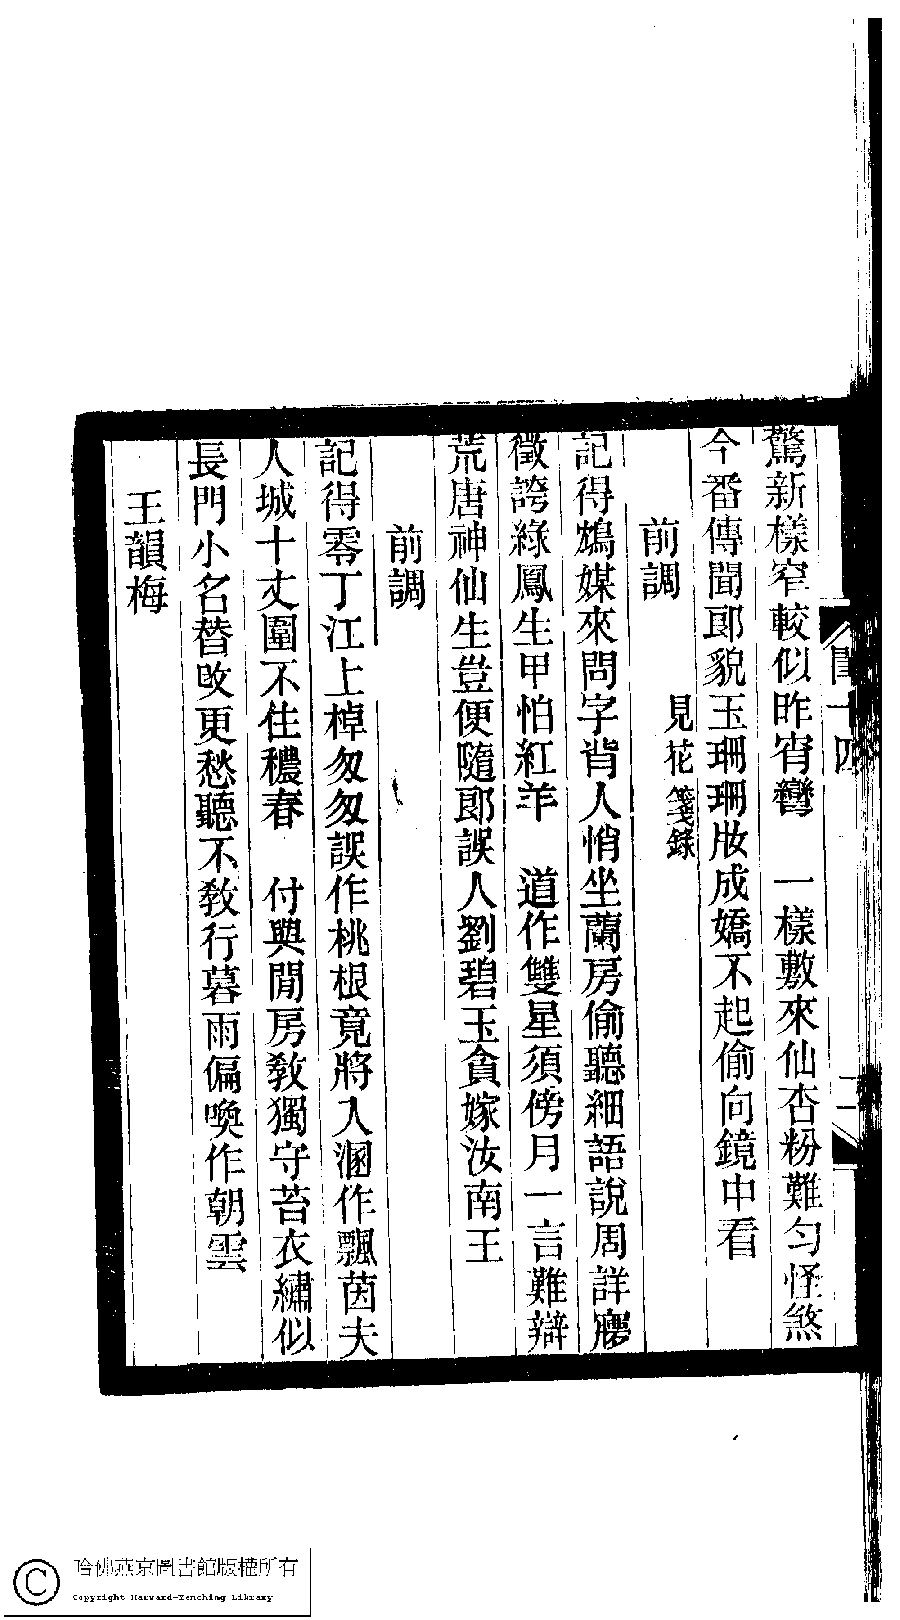 驚新樣窄較似昨宵彎　一樣敷來仙杏粉難勻怪煞
今番傳聞郎貌玉珊珊妝成嬌不起偷向鏡中看
前調　見花箋錄
記得鴆媒來問字背人悄坐蘭房偷聽細語說周詳
徵誇綠鳳生甲怕紅羊　道作雙星須傍月一言難辯
荒唐神仙生豈便隨郎誤人劉碧玉貪嫁汝南王
前調
記得零丁江上棹匆匆誤作桃根竟將入溷作飄茵夫
人城十丈圍不住穠春　付與閒房敎獨守苔衣繡似
長門小名替改更愁聽不敎行暮雨偏喚作朝雲
王韻梅
十四
二
哈佛燕京圖書館版權所有
Copyright Harvard-Yenching Library